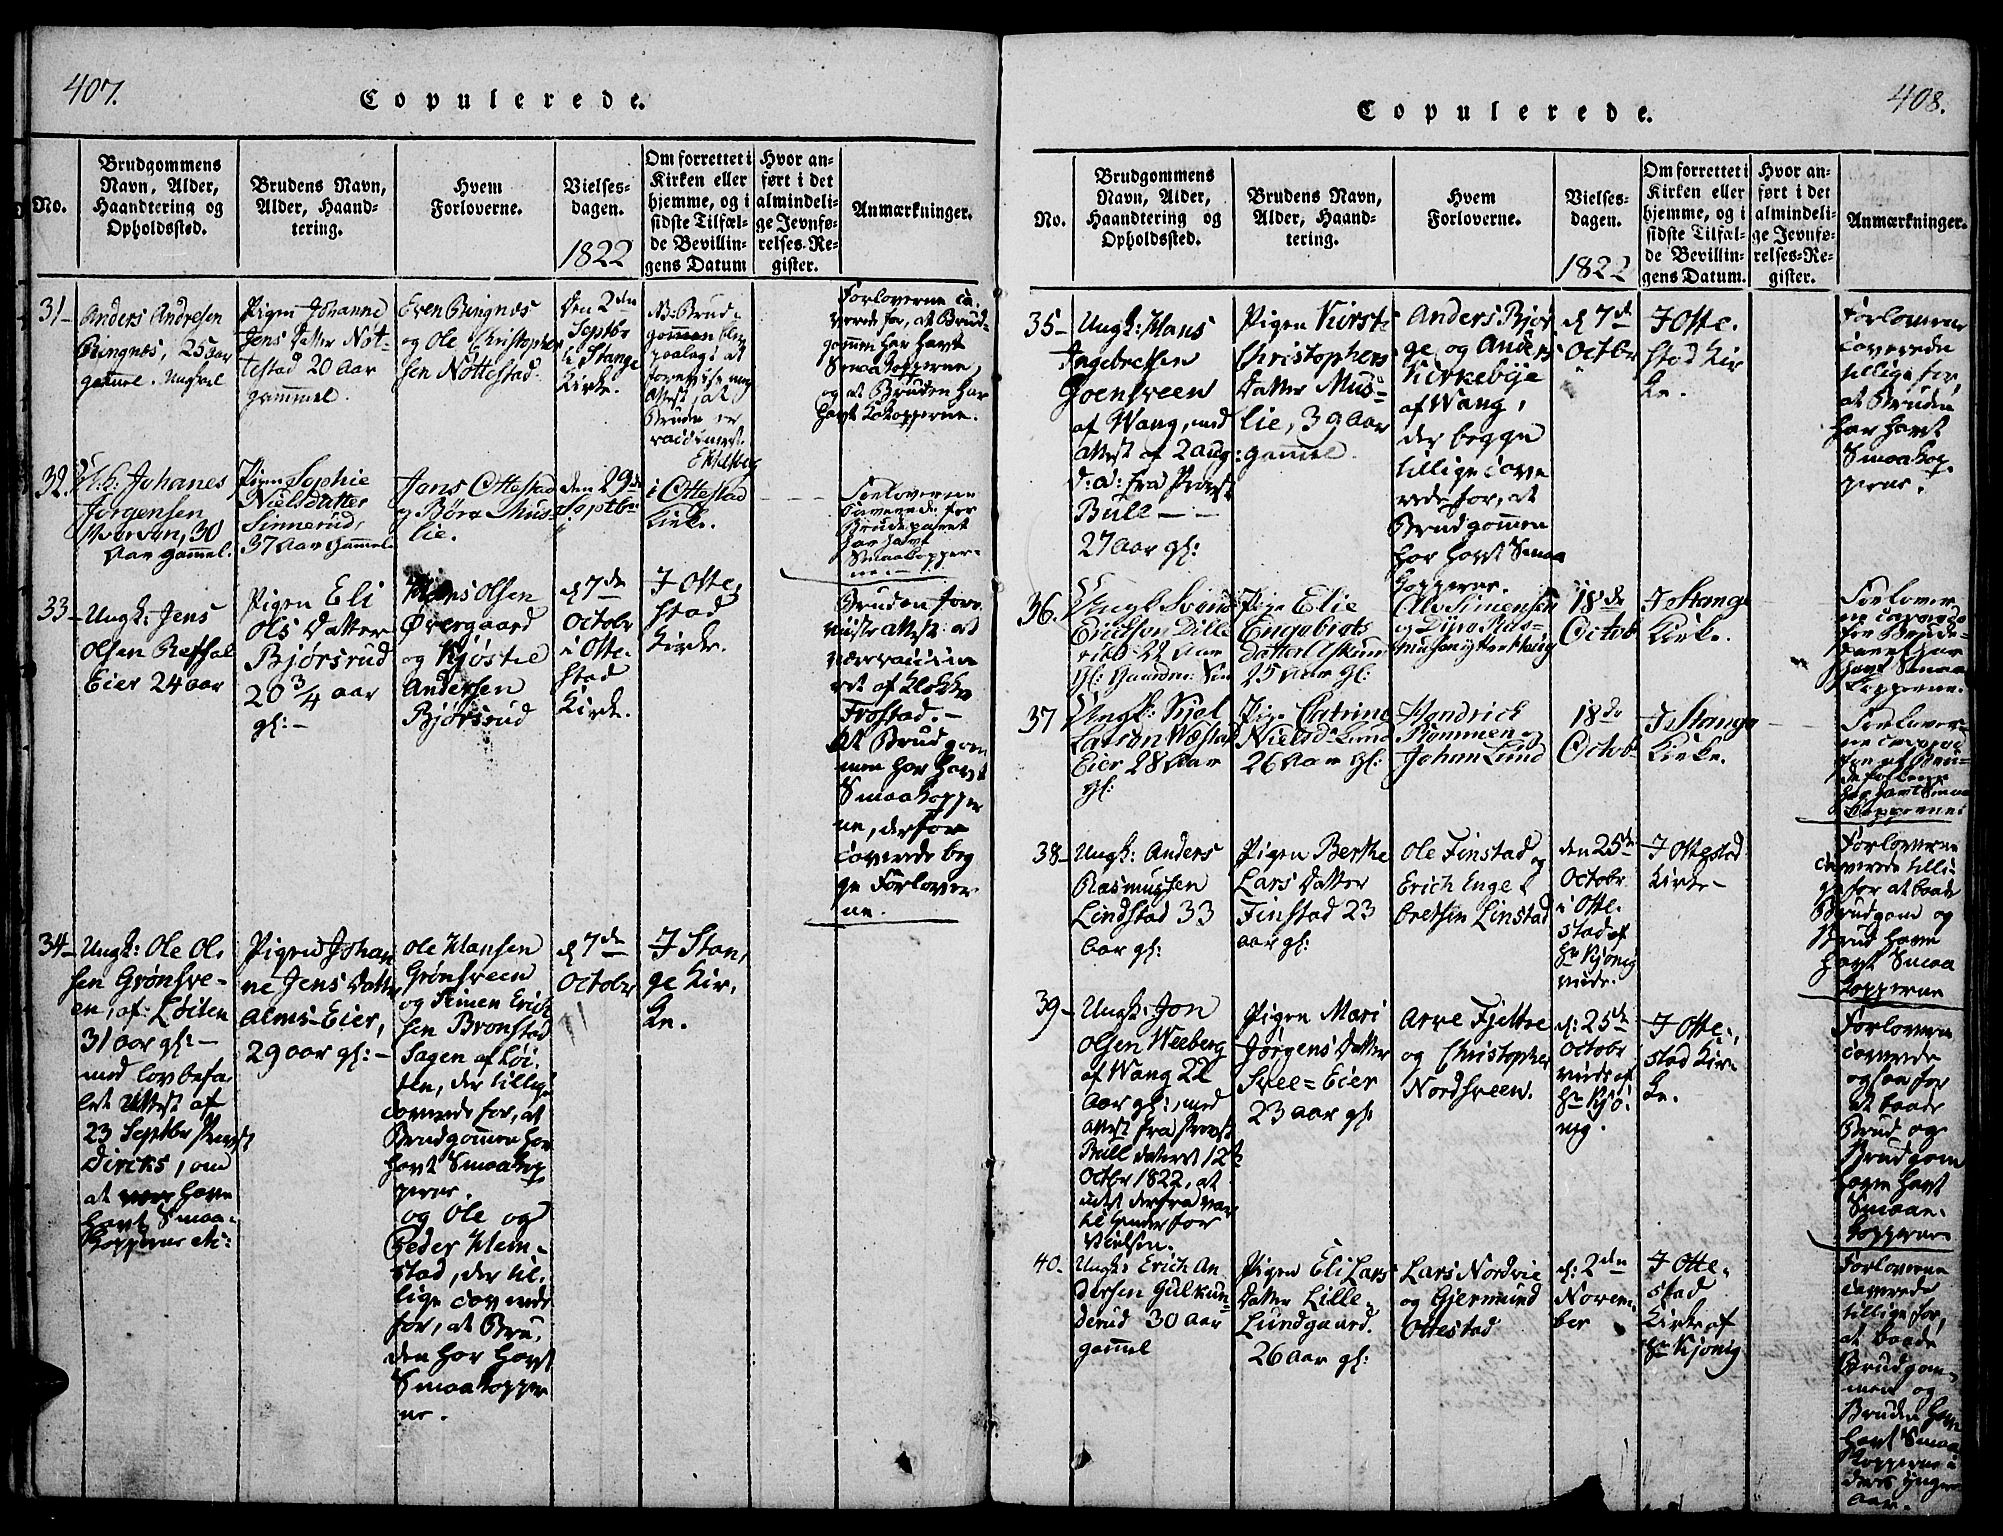 407.
Copulerede.
No.
Brudgommens
Navn, Alder,
Haandtering og
Opholdssted.
Brudens Navn,
Alder, Haand-
tering.
Hvem
Forloverne.
Vielses-
dagen.
1822
Om forrettet i
Kirken eller
hjemme, og i
sidste Tilfæl-
de Bevillin-
gens Datum
Hvor an-
ført i det
almindeli-
ge Jevnfø-
relses-Re-
gister.
Anmærkninger.
31-
Anders Andresen
Ringnes, 25 aar
gammel. Ungkarl
Pigen Johanne
Jens Datter Not-
testad 20 Aar
gammel.
Even Ringnes
og Ole Christopher
sen Nøttestad.
Den 2den
Septbr
i Stange
Kirke.
NB: Brud-
gommen blev
paalagt at
forevise
Attest, at
Bruden er
vaccineret.
Forloverne ca-
verede for, at Brud-
gommen har havt
Smaakopperne,
og at Bruden har
havt Kokopperne.
32.
Johanes
Jørgensen
30
Aar gammel.
Pigen Sophie
Nielsdatter
Sinnerud,
37 Aar Gammel
Jens Ottestad
og Bjørn Mus-
lie.
den 29de
Septbr
i Ottestad
Kirke.
Forloverne
caverede for
Brudeparret
har havt
Smaakopper-
ne.
33-
Ungk: Jens
Olsen Refsal
Eier 24 aar
Pigen Eli
Ols Datter
Bjørsrud
20 3/4 aar
gl:-
Hans Olsen
Øvergaard
og Kjøstel
Andersen
Bjørsrud
d 7de
Octobr
i Otte-
stad
Kirke.
I Otte,
stad
Kirke.
Bruden fore-
viiste attest at
være vaccine
ret af Klokker
Frostad.-
At Brudgom
men har havt
Smaakopper
ne, derfor
caverede beg
ge Forlover-
ne.
34-
Ungk: Ole Ol-
sen Grønsve-
en, af Løiten
31 aar gl:-
med lovbefa-
let Attest af
23 Septbr Provst
Diriks, om
at have
havt Smaa-
kopperne etc:
Pigen Johan
ne Jens Datter
Alms-Eier,
29 aar gl:-
Ole Hansen
Grønsveen
og Simen Erich
sen Bronstad
Sagen af Løi-
ten, der tillige
caverede for, at
Brudgommen har
havt Smaakop
perne.
og Ole og
Peder Hem-
stad, der til-
lige caverede
for, at Bru-
den har havt
Smaakopper
ne.
d 7de
Octobr
I Stan,
ge Kir,
ke.
408.
Copulerede.
No.
Brudgommens
Navn, Alder,
Haandtering og
Opholdssted.
Brudens Navn,
Alder, Haand-
tering.
Hvem
Forloverne.
Vielses-
dagen.
1822
Om forrettet i
Kirken eller
hjemme, og i
sidste Tilfæl-
de Bevillin-
gens Datum.
Hvor an-
ført i det
almindeli-
ge Jevnfø-
relses-Re-
gister.
Anmærkninger.
35-
Ungk: Hans
Ingebretsen
Goensveen
af Wang, med
Attest af 2 aug:
d: a: fra Provst
Bull - -
27 Aar gl:
Pigen Kirsti
Christophers
Datter Mus-
lie, 39 Aar
gammel.
Anders Bjør
ge, og Anders
Kirkebye
af Wang,
der begge
tillige cave
rede for, at
Brudgommen
har havt Smaa
kopperne.
d 7de
Octbr
I Otte-
stad Kir
ke.
Forloverne
caverede
tillige for,
at Bruden
har havt
Smaakop-
perne.
36.
Ungk Svend
Erickson Dille
rud 22 Aar
gl:
Pige Elie
Engebrets
datter
25 Aar gl:
Ole Simensen
og
18de
Octob
I Stange
Kirke.
Forlover-
ne caverede
for Brude-
paret har
havt Smaa-
kopperne.
37
Ungk: Kjel
Larsen
Eier 28 Aar
gl:
Pige Catrine
Nielsd: Lund
26 Aar gl:
Hendrick
Rommen og
Johan Lund
18de
Octob
I Stange
Kirke.
Forlover-
ne
for at Bru-
defolkene
har havt Smaa-
kopperne
38-
Ungk: Anders
Rasmussen
Lindstad 33
Aar gl:
Pigen Berthe
Lars Datter
Finstad 23
aar gl:
Ole Finstad og
Erich Enge-
bretsen Linstad
den 25de
Octobr
i Otte-
stad af
Hr Kjønig
viede.
I Ottestad
Kirke-
Forloverne
caverede tilli-
ge for at baade
Brudgom og
Brud have
havt Smaa
kopperne
39-
Ungk: Jon
Olsen Weeberg
af Wang 22
Aar gl:, med
Attest fra Provst
Bull dateret 12te
Octbr 1822, at
intet derfra var
til hinder for
Vielsen.
Pigen Mari
Jørgens Datter
Svee-Eier
23 aar gl:
Arne Fjeltre
og Christopher
Nordsveen.
d: 25de
Octobr
viede af
Hr Kjø-
nig.
I Otte-,
stad Kir-
ke.
Forloverne
caverede
ogsaa for
at baade
Brud og
Brudgom
have havt
Smaae-
kopperne
40-
Ungk: Erich An
dersen Gulkun-
derud 30 aar
gammel
Pigen Eli Lars
Datter Lille-
Lundgaard.
26 Aar gl:
Lars Nordvie
og Gjermund
Ottestad
d: 2den
Novem-
ber
I Otte-
stad
Kirke af
Hr Kjønig
Forloverne
caverede
tillige for,
at baade
Brudgom-
men og
Bruden have
havt Smaa-
kopperne i
deres yngre
Aar.